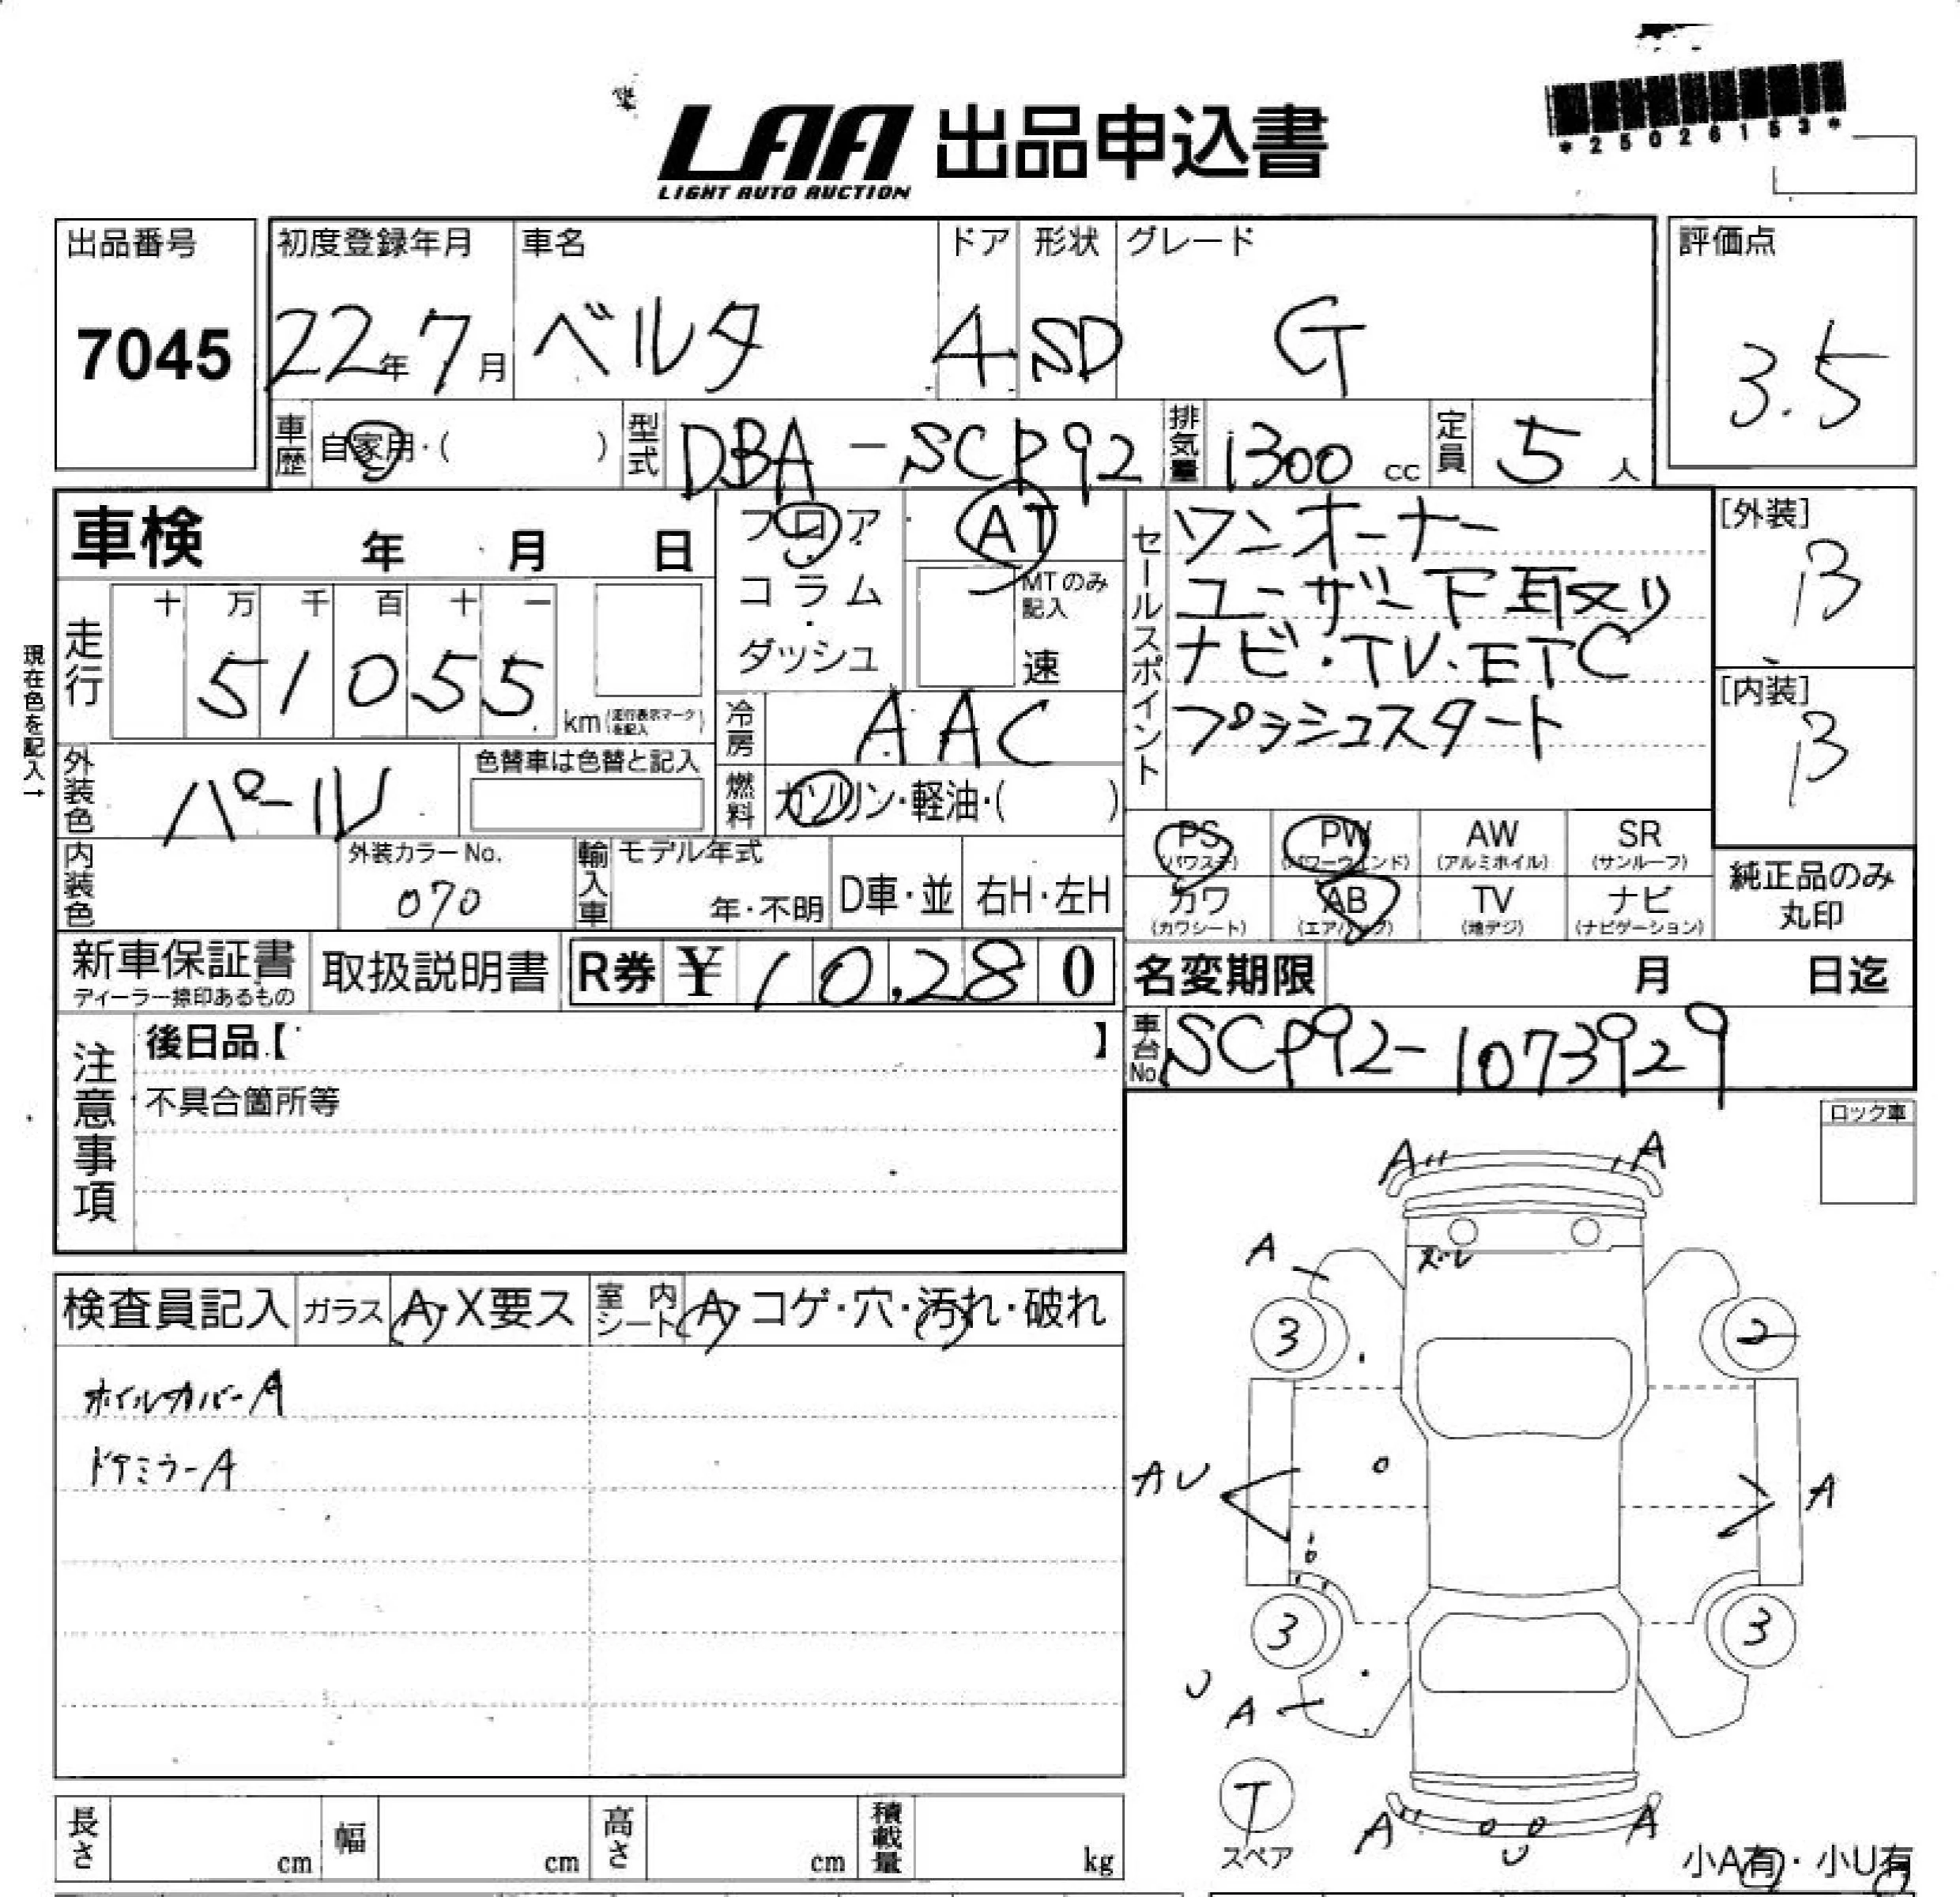 LAA 出品申込書
LIGHT AUTO AUCTION
*25026153*
出品番号 初度登録年月 車名 ドア 形状 グレード 評価点
7045 22年7月 ベルタ 4 SD G 3.5
車歴 自家用・( ) 型式 DBA-SCP92 排気量 1300 cc 定員 5 人
車検 年 月 日
フロア・コラム・ダッシュ
AT
MTのみ記入
速
セールスポイント
ワンオーナー
ユーザー下取り
ナビ・TV・ETC
プッシュスタート
[外装]
B
[内装]
B
現在色を記入→
走行 十 万 千 百 十 一
51055 km(走行表示マークを記入)
冷房 AAC
外装色 パール 色替車は色替と記入
燃料 ガソリン・軽油・( )
内装色 外装カラーNo. 070
輸入車 モデル年式 年・不明 D車・並 右H・左H
PS (パワステ) PW (パワーウィンド) AW (アルミホイル) SR (サンルーフ)
カワ (カワシート) AB (エアバッグ) TV (地デジ) ナビ (ナビゲーション)
純正品のみ
丸印
新車保証書 取扱説明書 R券 ¥ 10,280
ディーラー捺印あるもの
名変期限 月 日迄
車台No. SCP92-1073929
注意事項
後日品【 】
不具合箇所等
ロック車
検査員記入 ガラス A・X要ス 室内シート A・コゲ・穴・汚れ・破れ
ホイルカバーA
ドアミラーA
A A
A ズレ
3 2
AU A
3 3
U
A
T
スペア
A U A
小A有・小U有
長さ cm 幅 cm 高さ cm 積載量 kg